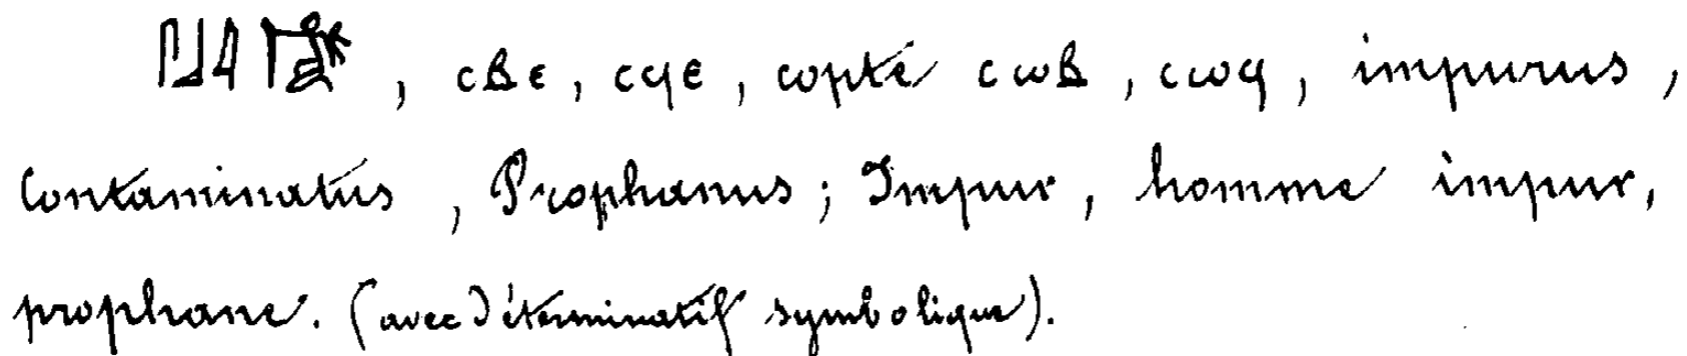 𓋴𓃀𓇋𓀏, ⲥⲃⲉ, ⲥϥⲉ, copte ⲥⲱⲃ, ⲥⲱϥ, impurus,
Contaminatus, Prophanus; Impur, homme impur,
prophane. (avec déterminatif symbolique).